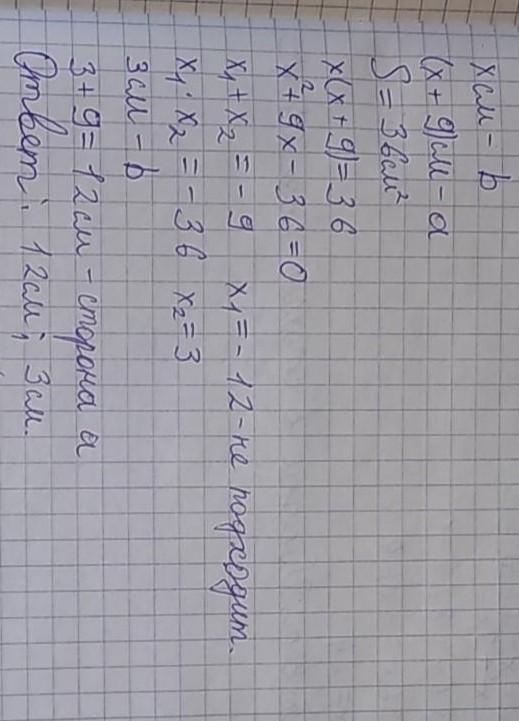 x см - b
(x + 9) см - a
S = 36 см²
x(x + 9) = 36
x² + 9x - 36 = 0
x₁ + x₂ = -9 x₁ = -12 - не подходит.
x₁ · x₂ = -36 x₂ = 3
3 см - b
3 + 9 = 12 см - сторона a
Ответ: 12 см; 3 см.